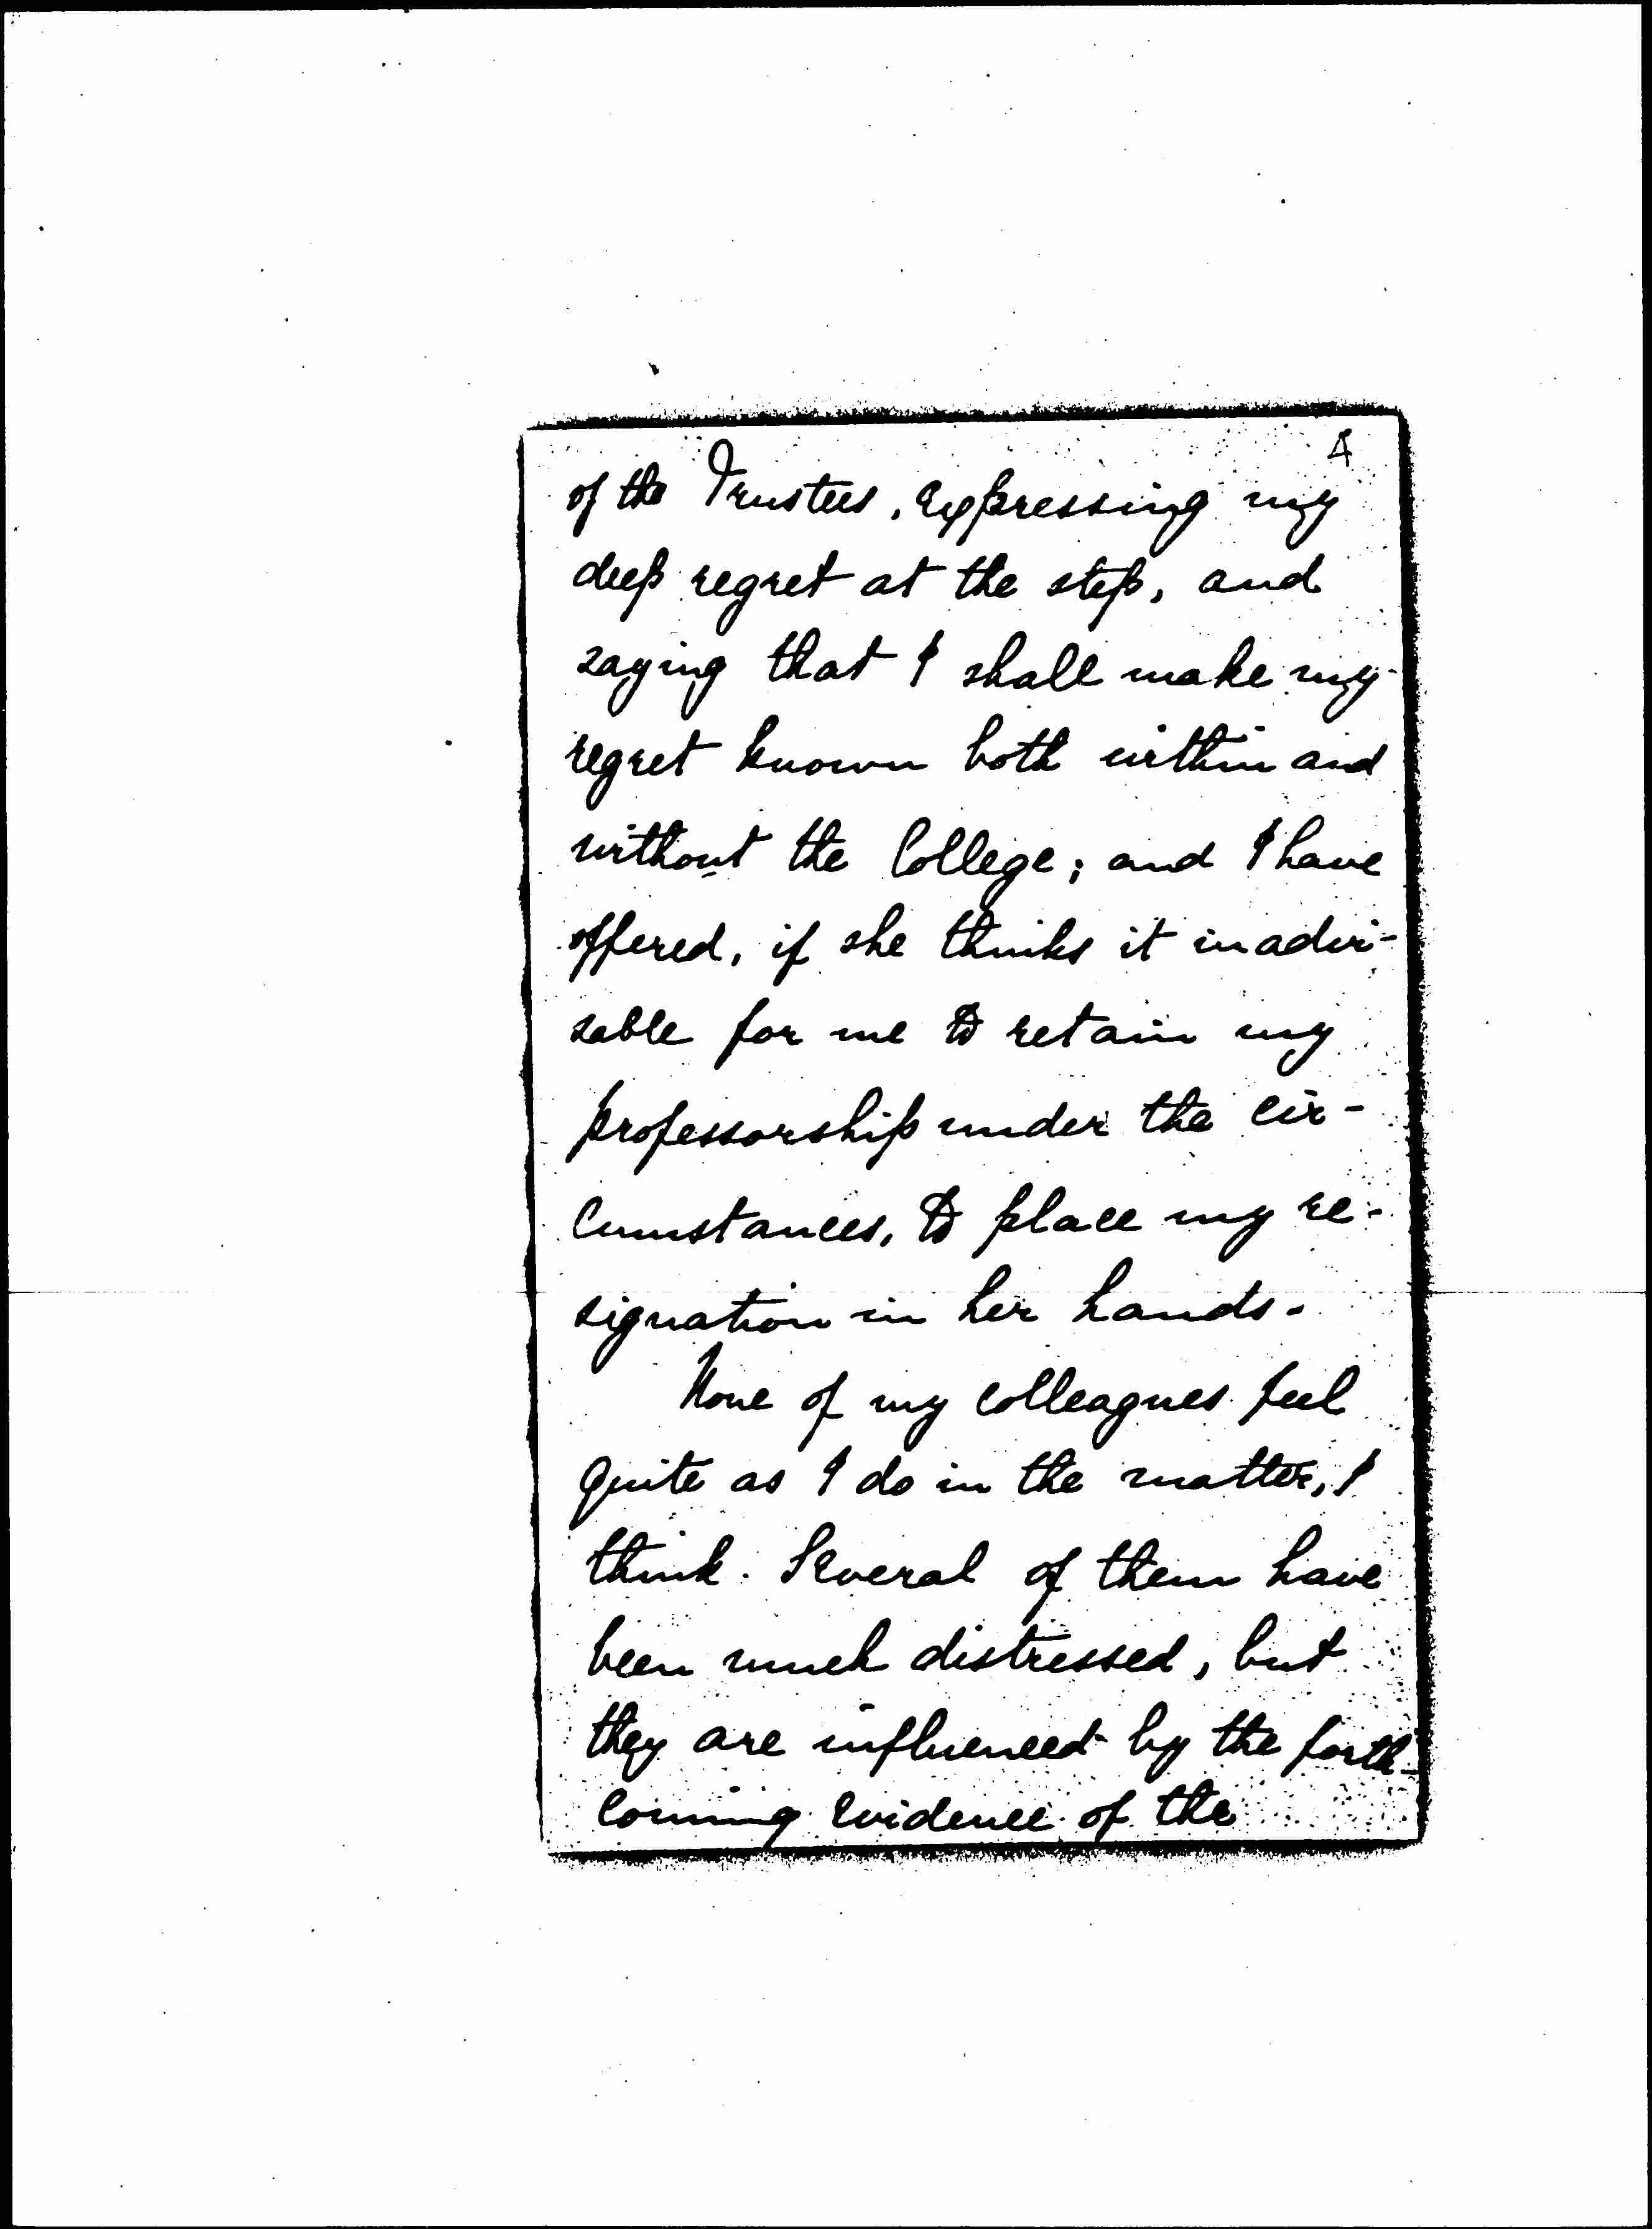 4
of the Trustees, expressing my
deep regret at the step, and
saying that I shall make my
regret known both within and
without the College; and I have
offered, if she thinks it inadvi-
sable for me to retain my
professorship under the cir-
cumstances, to place my re-
signation in her hands.
None of my colleagues feel
quite as I do in the matter, I
think. Several of them have
been much distressed, but
they are influenced by the forth-
coming evidence of the